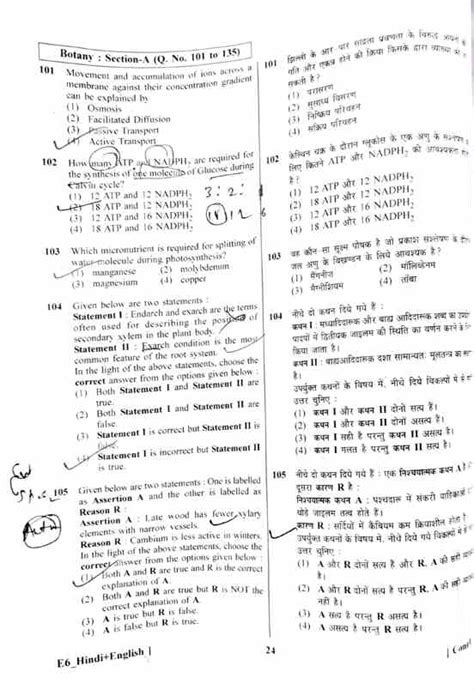 Botany : Section-A (Q. No. 101 to 135)
101 Movement and accumulation of ions across a
membrane against their concentration gradient
can be explained by
(1) Osmosis
(2) Facilitated Diffusion
(3) Passive Transport
(4) Active Transport
102 How many ATP and NADPH2 are required for
the synthesis of one molecule of Glucose during
Calvin cycle?
(1) 12 ATP and 12 NADPH2
(2) 18 ATP and 12 NADPH2
(3) 12 ATP and 16 NADPH2
(4) 18 ATP and 16 NADPH2
3:2:
18 12
103 Which micronutrient is required for splitting of
water molecule during photosynthesis?
(1) manganese (2) molybdenum
(3) magnesium (4) copper
104 Given below are two statements :
Statement I : Endarch and exarch are the terms
often used for describing the position of
secondary xylem in the plant body.
Statement II : Exarch condition is the most
common feature of the root system.
In the light of the above statements, choose the
correct answer from the options given below :
(1) Both Statement I and Statement II are
true.
(2) Both Statement I and Statement II are
false.
(3) Statement I is correct but Statement II
is false.
(4) Statement I is incorrect but Statement II
is true.
105 Given below are two statements : One is labelled
as Assertion A and the other is labelled as
Reason R :
Assertion A : Late wood has fewer xylary
elements with narrow vessels.
Reason R : Cambium is less active in winters.
In the light of the above statements, choose the
correct answer from the options given below :
(1) Both A and R are true and R is the correct
explanation of A.
(2) Both A and R are true but R is NOT the
correct explanation of A.
(3) A is true but R is false.
(4) A is false but R is true.
101 झिल्ली के आर-पार सांद्रता प्रवणता के विरुद्ध
गति और एकत्र होने की क्रिया किसके द्वारा
सकती है?
(1) परासरण
(2) सुसाध्य विसरण
(3) निष्क्रिय परिवहन
(4) सक्रिय परिवहन
102 केल्विन चक्र के दौरान ग्लूकोस के एक अणु के
लिए कितने ATP और NADPH2 की आवश्यकता
है?
(1) 12 ATP और 12 NADPH2
(2) 18 ATP और 12 NADPH2
(3) 12 ATP और 16 NADPH2
(4) 18 ATP और 16 NADPH2
103 वह कौन-सा सूक्ष्म पोषक है जो प्रकाश संश्लेषण के
जल अणु के विखण्डन के लिये आवश्यक है?
(1) मैंगनीज (2) मॉलिब्डेनम
(3) मैग्नीशियम (4) तांबा
104 नीचे दो कथन दिये गये हैं :
कथन I : मध्यादिदारूक और बाह्य आदिदारूक शब्दों का
पादपों में द्वितीयक जाइलम की स्थिति का वर्णन करने के
किया जाता है।
कथन II : बाह्यआदिदारूक दशा सामान्यतः मूलतन्त्र का
है।
उपर्युक्त कथनों के विषय में, नीचे दिये विकल्पों में से
उत्तर चुनिए :
(1) कथन I और कथन II दोनों सत्य हैं।
(2) कथन I और कथन II दोनों असत्य हैं।
(3) कथन I सही है परन्तु कथन II असत्य है।
(4) कथन I गलत है परन्तु कथन II सत्य है।
105 नीचे दो कथन दिये गये हैं : एक निश्चयात्मक कथन A
दूसरा कारण R है :
निश्चयात्मक कथन A : पश्चदारू में संकरी वाहिकाओं
थोड़े जाइलम तत्व होते हैं।
कारण R : सर्दियों में कैंबियम कम क्रियाशील होता है।
उपर्युक्त कथनों के विषय में, नीचे दिये गये विकल्पों में
उत्तर चुनिए :
(1) A और R दोनों सत्य है और R, A की सही
है।
(2) A और R दोनों सत्य हैं परन्तु R, A की सही
नहीं है।
(3) A सत्य है परन्तु R असत्य है।
(4) A असत्य है परन्तु R सत्य है।
E6_Hindi+English ]
24